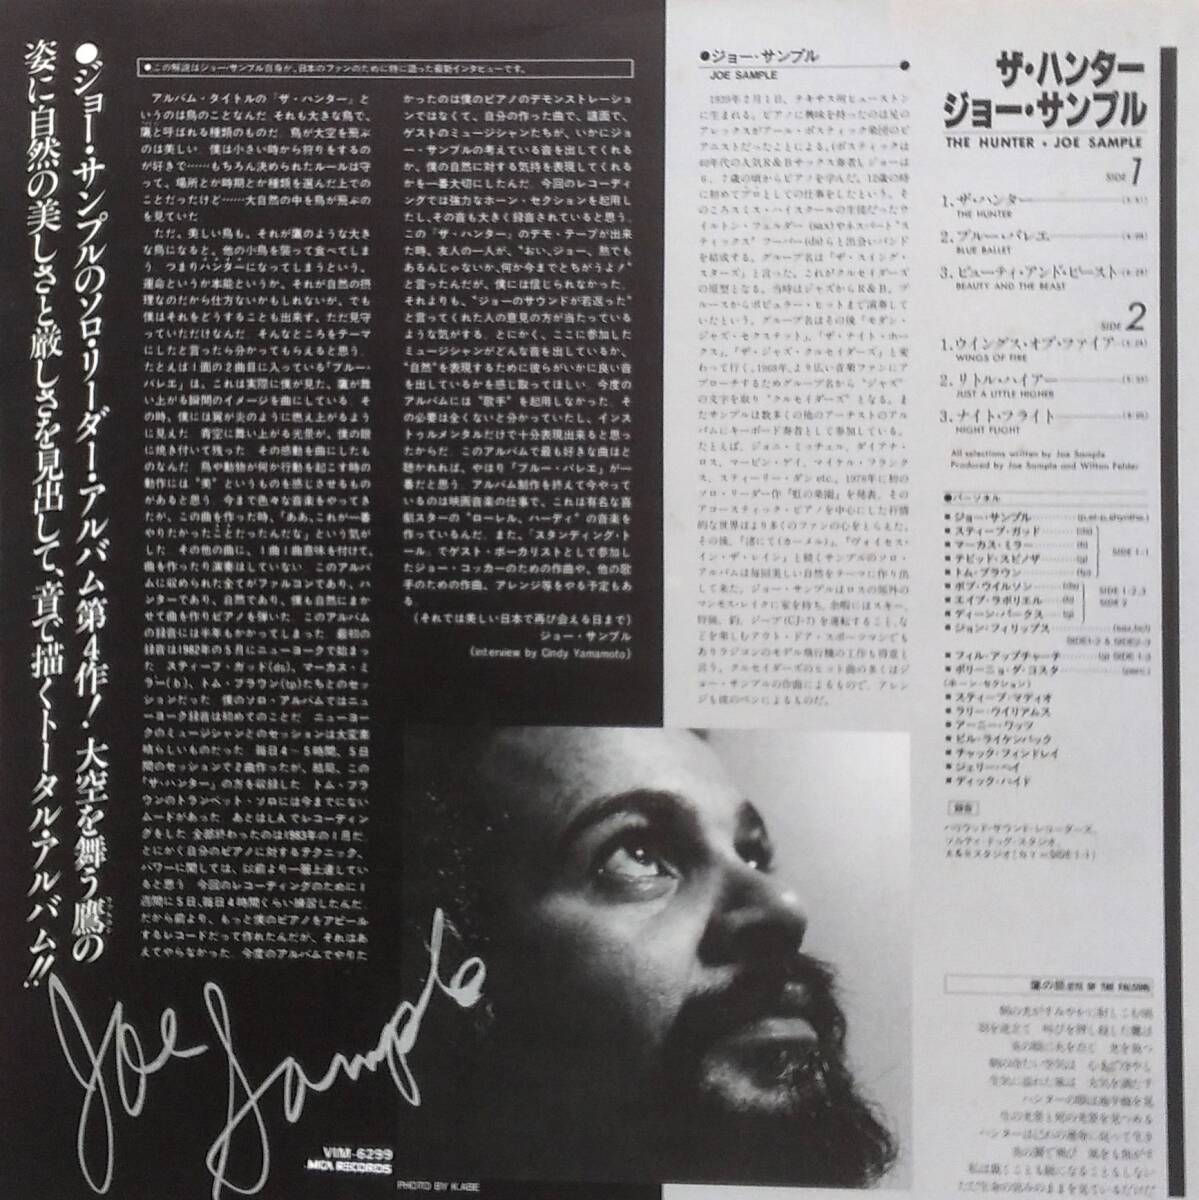 ●ジョー・サンプルのソロ・リーダー・アルバム第4作! 大空を舞う鷹の
姿に自然の美しさと厳しさを見出して、音で描くトータル・アルバム!!
●この解説はジョー・サンプル自身が、日本のファンのために特に語った最新インタビューです。
アルバム・タイトルの『ザ・ハンター』と
いうのは鳥のことなんだ それも大きな鳥で、
鷹と呼ばれる種類のものだ 鳥が大空を飛ぶ
のは美しい 僕は小さい時から狩りをするの
が好きで……もちろん決められたルールは守
って、場所とか時期とか種類を選んだ上での
ことだったけど……大自然の中を鳥が飛ぶの
を見ていた
ただ、美しい鳥も、それが鷹のような大き
な鳥になると、他の小鳥を襲って食べてしま
う つまりハンターになってしまうという、
運命というか本能というか、それが自然の摂
理なのだから仕方ないかもしれないが、でも
僕はそれをどうすることも出来ず、ただ見守
っていただけなんだ そんなところをテーマ
にしたと言ったら分かってもらえると思う
たとえば1面の2曲目に入っている「ブルー・
バレエ」は、これは実際に僕が見た、鷹が舞
い上がる瞬間のイメージを曲にしている そ
の時、僕には翼が炎のように燃え上がるよう
に見えた 青空に舞い上がる光景が、僕の眼
に焼き付いて残った その感動を曲にしたも
のなんだ 鳥や動物が何か行動を起こす時の
動作には“美”というものを感じさせるもの
があると思う 今まで色々な音楽をやってき
たが、この曲を作った時、「ああ、これが一番
やりたかったことだったんだな」という気が
した その他の曲に、1曲1曲意味を付けて、
曲を作ったり演奏はしていない このアルバ
ムに収められた全てがファルコンであり、ハ
ンターであり、自然であり、僕も自然にまか
せて曲を作りピアノを弾いた このアルバム
の録音には半年もかかってしまった 最初の
録音は1982年の5月にニューヨークで始まっ
た スティーブ・ガッド(ds)、マーカス・ミ
ラー(b)、トム・ブラウン(tp)たちとのセッ
ションだった 僕のソロ・アルバムではニュ
ーヨーク録音は初めてのことだ ニューヨー
クのミュージシャンとのセッションは大変素
晴らしいものだった 毎日4〜5時間、5日
間のセッションで2曲作ったが、結局、この
「ザ・ハンター」の方を収録した トム・ブラ
ウンのトランペット・ソロには今までにない
ムードがあった あとはL.A.でレコーディン
グをした 全部終わったのは1983年の1月だ
とにかく自分のピアノに対するテクニック、
パワーに関しては、以前より一層上達してい
ると思う 今回のレコーディングのために1
週間に5日、毎日4時間くらい練習したんだ
だから前より、もっと僕のピアノをアピール
するレコードだって作れたんだが、それはあ
えてやらなかった 今度のアルバムでやりた
かったのは僕のピアノのデモンストレーショ
ンではなくて、自分の作った曲で、譜面で、
ゲストのミュージシャンたちが、いかにジョ
ー・サンプルの考えている音を出してくれる
か、僕の自然に対する気持を表現してくれる
かを一番大切にしたんだ 今回のレコーディ
ングでは強力なホーン・セクションを起用し
たし、その音も大きく録音されていると思う
この『ザ・ハンター』のデモ・テープが出来
た時、友人の一人が、“おい、ジョー、熱でも
あるんじゃないか、何か今までとちがうよ!”
と言ったんだが、僕には信じられなかった
それよりも、“ジョーのサウンドが若返った”
と言ってくれた人の意見の方が当たっている
ような気がする とにかく、ここに参加した
ミュージシャンがどんな音を出しているか、
“自然”を表現するために彼らがいかに良い音
を出しているかを感じ取ってほしい 今度の
アルバムには“歌手”を起用しなかった そ
の必要は全くないと分かっていたし、インス
トゥルメンタルだけで十分表現出来ると思っ
たからだ このアルバムで最も好きな曲はと
聴かれれば、やはり「ブルー・バレエ」が一
番だと思う アルバム制作を終えて今やって
いるのは映画音楽の仕事で、これは有名な喜
劇スターの“ローレル、ハーディ”の音楽を
作っているんだ また、「スタンディング・ト
ール」でゲスト・ボーカリストとして参加し
たジョー・コッカーのための作曲や、他の歌
手のための作曲、アレンジ等をやる予定もあ
る
(それでは美しい日本で再び会える日まで)
ジョー・サンプル
(interview by Cindy Yamamoto)
●ジョー・サンプル
JOE SAMPLE
1939年2月1日、テキサス州ヒューストン
に生まれる。ピアノに興味を持ったのは兄の
アレックスがアール・ボスティック楽団のピ
アニストだったことによる。(ボスティックは
40年代の人気R&Bサックス奏者)。ジョーは
6、7歳の頃からピアノを学んだ。12歳の時
に初めてプロとしての仕事をしたという。そ
のころスミス・ハイスクールの生徒だったウ
イルトン・フェルダー(sax)やネスバート“ス
ティックス”フーパー(ds)らと出会いバンド
を結成する。グループ名は「ザ・スイング・
スターズ」と言った。これがクルセイダーズ
の原型となる。当時はジャズからR&B、ブ
ルースからポピュラー・ヒットまで演奏して
いたという。グループ名はその後「モダン・
ジャズ・セクステット」、「ザ・ナイト・ホー
クス」、「ザ・ジャズ・クルセイダーズ」と変
わって行く。1968年、より広い音楽ファンにア
プローチするためグループ名から“ジャズ”
の文字を取り“クルセイダーズ”となる。ま
たサンプルは数多くの他のアーチストのアル
バムにキーボード奏者として参加している。
たとえば、ジョニ・ミッチェル、ダイアナ・
ロス、マービン・ゲイ、マイケル・フランク
ス、スティーリー・ダンetc.。1978年に初の
ソロ・リーダー作『虹の楽園』を発表、その
アコースティック・ピアノを中心にした抒情
的な世界はより多くのファンの心をとらえた。
その後、『渚にて(カーメル)』、『ヴォイセス・
イン・ザ・レイン』と続くサンプルのソロ・
アルバムは毎回美しい自然をテーマに作り出
して来た。ジョー・サンプルはロスの郊外の
マンモス・レイクに家を持ち、余暇にはスキー、
狩猟、釣、ジープ(CJ-7)を運転すること、な
どを楽しむアウト・ドア・スポーツマンでも
ありラジコンのモデル飛行機の工作も得意と
言う。クルセイダーズのヒット曲の多くはジ
ョー・サンプルの作曲によるもので、アレン
ジも彼のペンによるものだ。
ザ・ハンター
ジョー・サンプル
THE HUNTER • JOE SAMPLE
SIDE 1
1、ザ・ハンター
THE HUNTER
2、ブルー・バレエ
BLUE BALLET
3、ビューティ・アンド・ビースト
BEAUTY AND THE BEAST
SIDE 2
1、ウイングス・オブ・ファイア
WINGS OF FIRE
2、リトル・ハイアー
JUST A LITTLE HIGHER
3、ナイト・フライト
NIGHT FLIGHT
All selections written by Joe Sample
Produced by Joe Sample and Wilton Felder
●パーソネル
■ジョー・サンプル
■スティーブ・ガッド (ds)
■マーカス・ミラー (b)
■デビッド・スピノザ (g)
■トム・ブラウン (tp)
SIDE 1-1
■ボブ・ウイルソン (ds)
■エイブ・ラボリエル (b)
■ディーン・パークス (g)
SIDE 1-2,3
SIDE 2
■ジョン・フィリップス
■フィル・アップチャーチ (g) SIDE 1-3
■ポリーニョ・ダ・コスタ (perc)
(ホーン・セクション)
■スティーブ・マディオ
■ラリー・ウイリアムス
■アーニー・ワッツ
■ビル・ライケンバック
■チャック・フィンドレイ
■ジェリー・ヘイ
■ディック・ハイド
録音
ハリウッド・サウンド・レコーダーズ、
ソルティ・ドッグ・スタジオ、
鷹の目 (EYE OF THE FALCON)
Joe Sample
VIM-6299
MCA RECORDS
PHOTO BY K.ABE